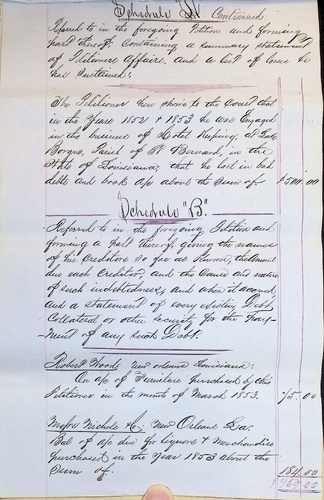 Schedule "A" Continued
Referred to in the foregoing Petition and forming
part thereof; Containing a summary statement
of Petitioners Affairs, and a list of losses he
has sustained:
The Petitioner here shows to the Court that
in the Years 1852 & 1853 he was Engaged
in the business of Hotel Keeping, at Lake
Borgne, Parish of St Bernard, in the
State of Louisiana, that he lost in bad
debts and book a/cs about the Sum of $500.00
Schedule "B"
Referred to in the foregoing Petition and
forming a part thereof, giving the names
of his Creditors so far as Known, the amount
due each Creditor, and the Cause and nature
of such indebtedness, and when it accrued,
and a statement of every existing Debt
Collateral or other security for the Pay-
ment of any such Debt.
Robert Woods New Orleans Louisiana:
On a/c of Furniture purchased by this
Petitioner in the month of March 1853. 75.00
Messrs Nichols & Co, New Orleans La.
Bal of a/c due for liquors & Merchandise
purchased in the Year 1853 about the
Sum of. 184.00